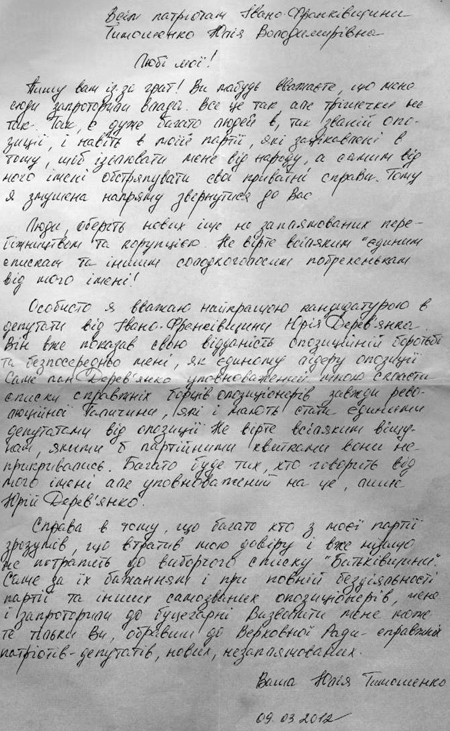 Всім патріотам Івано-Франківщини
Тимошенко Юлія Володимирівна
Любі мої!
Пишу вам із-за грат! Ви мабудь вважаєте, що мене
сюди запроторила влада. Все це так, але трішечки не
так. Так, є дуже багато людей в, так званій опо-
зиції, і навіть в моїй партії, які зацікавлені в
тому, щоб ізолювати мене від народу, а самим від
мого імені обстряпувати сваї приватні справи. Тому
я змушена напряму звернутися до Вас
Люди, оберіть нових іще не заплямованих пере-
біжництвом та корупцією. Не вірте всіляким "єдиним
спискам та іншим солодкоголосим потреконькам
від мого імені!
Особисто я вважаю найкращою кандидатурою в
депутати від Івано-Франківщини Юрія Дерев'янка.
Він вже показав свою відданість опозиційній боротьбі
та безпосередньо мені, як єдиному лідеру опозиції
Саме пан Дерев'янко уповноважений мною скласти
списки справжніх борців опозиціонерів завжди рево-
люційної Галичини, які і мають стати єдиними
депутатами від опозиції Не вірте всіляким віщу-
нам, якими б партійними квитками вони не
прикривались. Багато буде тих, хто говорить від
мого імені але уповноважений на це, лише
Юрій Дерев'янко.
Справа в тому, що багато хто з моєї партії
зрозумів, що втратив мою довіру і вже ніколи
не потрапить до виборчого списку "Батьківщини".
Саме за їх бажанням і при повній бездіяльності
партії та інших самозваних опозиціонерів, мене
і запроторили до буцегарні Визволити мене може
те тільки Ви, обравши до Верховної Ради- справжніх
патріотів-депутатів, нових, незаплямованих.
Ваша Юлія Тимошенко
09.03.2012